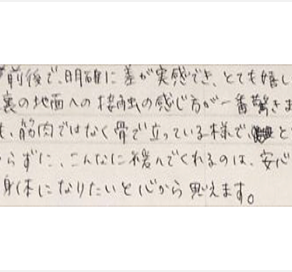 前後で、明確に差が実感でき、とても嬉し
裏の地面への接触の感じ方が一番驚きま
、筋肉ではなく骨で立っている様で、と
らずに、こんなに緩んでくれるのは、安心
身体になりたいと心から思えます。